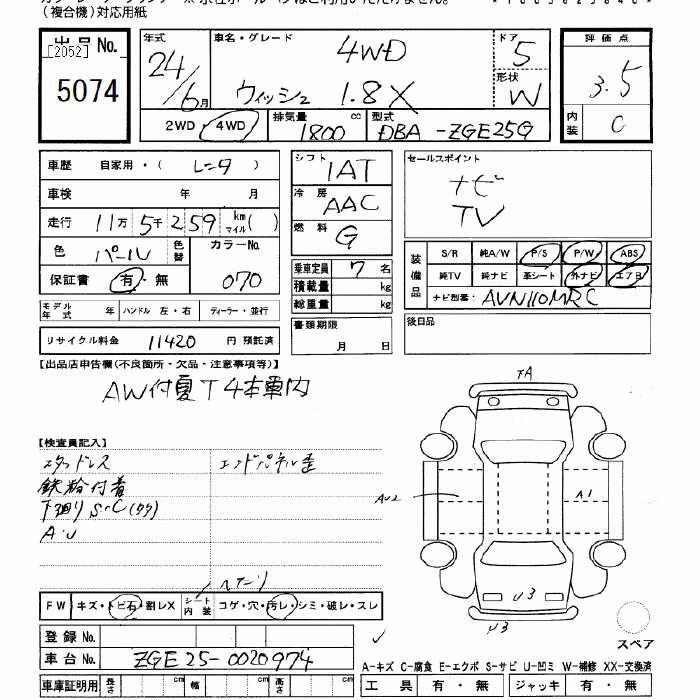 (複合機)対応用紙
出品No.
[2052]
5074
年式 24/6月
車名・グレード 4WD
ウィッシュ 1.8X
ドア 5
形状 W
評価点 3.5
内装 C
2WD・4WD 排気量 1800 cc 型式 DBA-ZGE25G
車歴 自家用・(レンタ)
車検 年 月
走行 11万5千259 km マイル( )
色 パール 色替 カラーNo. 070
保証書 有・無
モデル年式 年 ハンドル 左・右 ディーラー・並行
リサイクル料金 11420 円預託済
シフト 1AT
冷房 AAC
燃料 G
乗車定員 7 名
積載量 kg
総重量 kg
書類期限 月 日
セールスポイント
ナビ
TV
装備品 S/R 純A/W P/S P/W ABS
純TV 純ナビ 革シート 外ナビ エアB
ナビ型番: AVN110MRC
後日品
【出品店申告欄(不良箇所・欠品・注意事項等)】
AW付夏T4本車内
【検査員記入】
スタッドレス エンドパネル歪
鉄粉付着
下廻りS・C(クケ)
A・U
ヘタリ
FW キズ・トビ石・割レX シート内装 コゲ・穴・汚レ・シミ・破レ・スレ
登録No.
車台No. ZGE25-0020974
車庫証明用 長さ cm 幅 cm 高さ cm
AU2
A1
U3
U3
スペア
A-キズ C-腐食 E-エクボ S-サビ U-凹ミ W-補修 XX-交換済
工具 有・無 ジャッキ 有・無